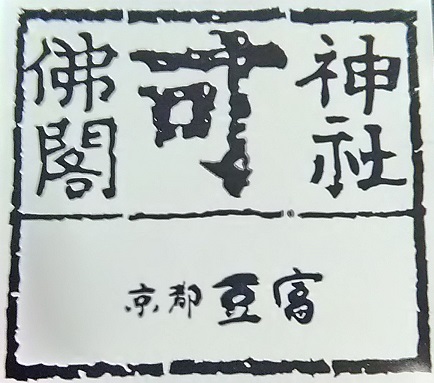 神社
可
佛閣
京都 豆富